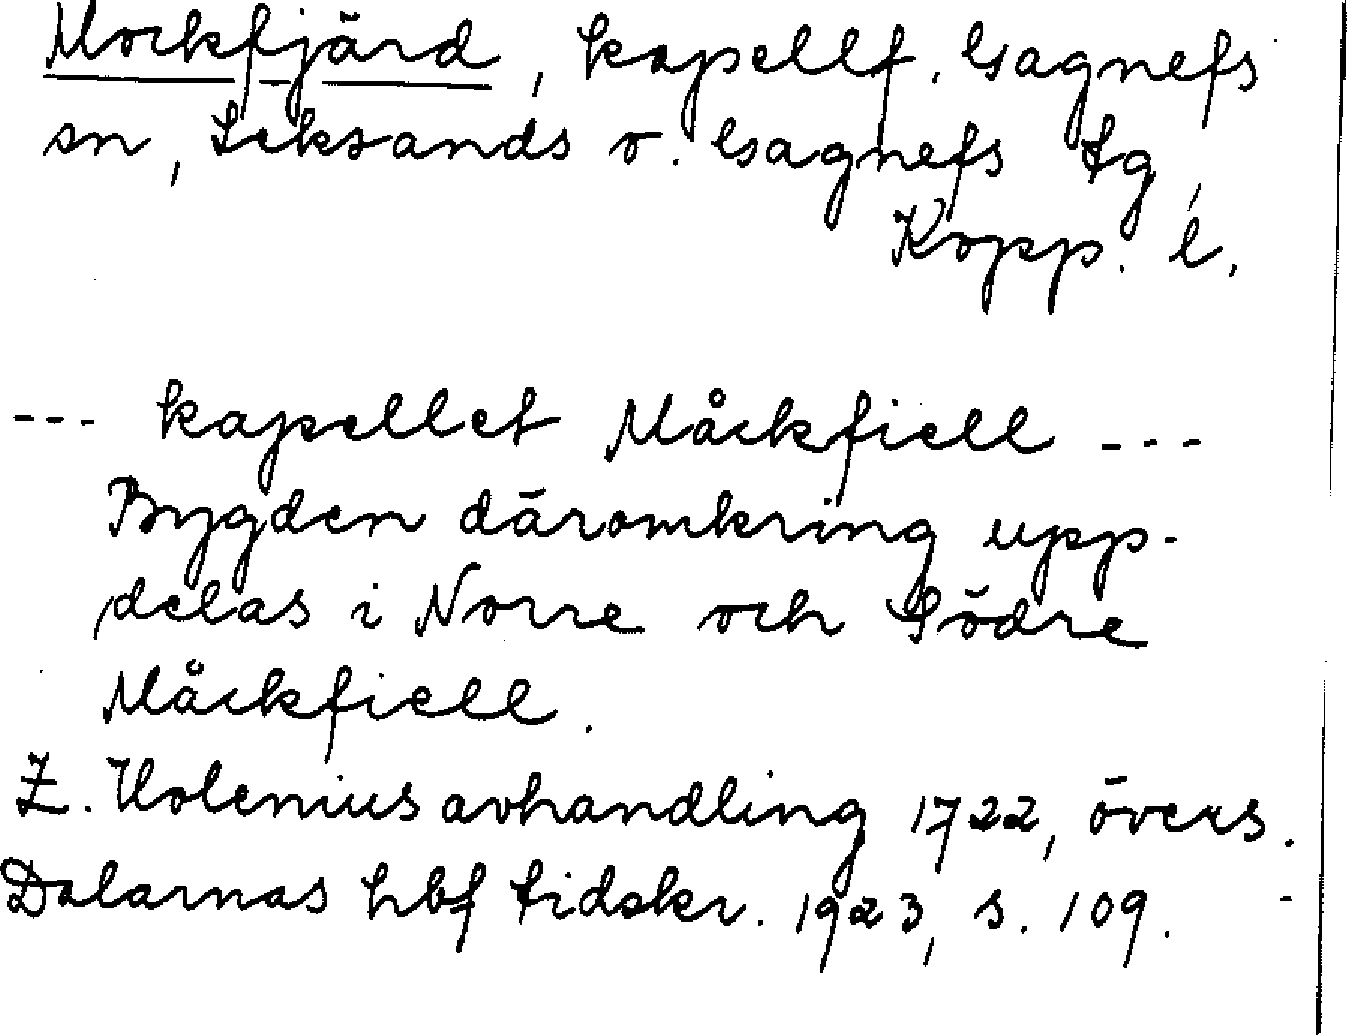 Mockfjärd, kapellf. Gagnefs
sn, Leksands o. Gagnefs tg,
Kopp. l.
--- kapellet Måckfiell ---
Bygden däromkring upp-
delas i Norre och Södre
Måckfiell.
Z. Holenius avhandling 1722, övers.
Dalarnas hbf tidskr. 1923, s. 109.